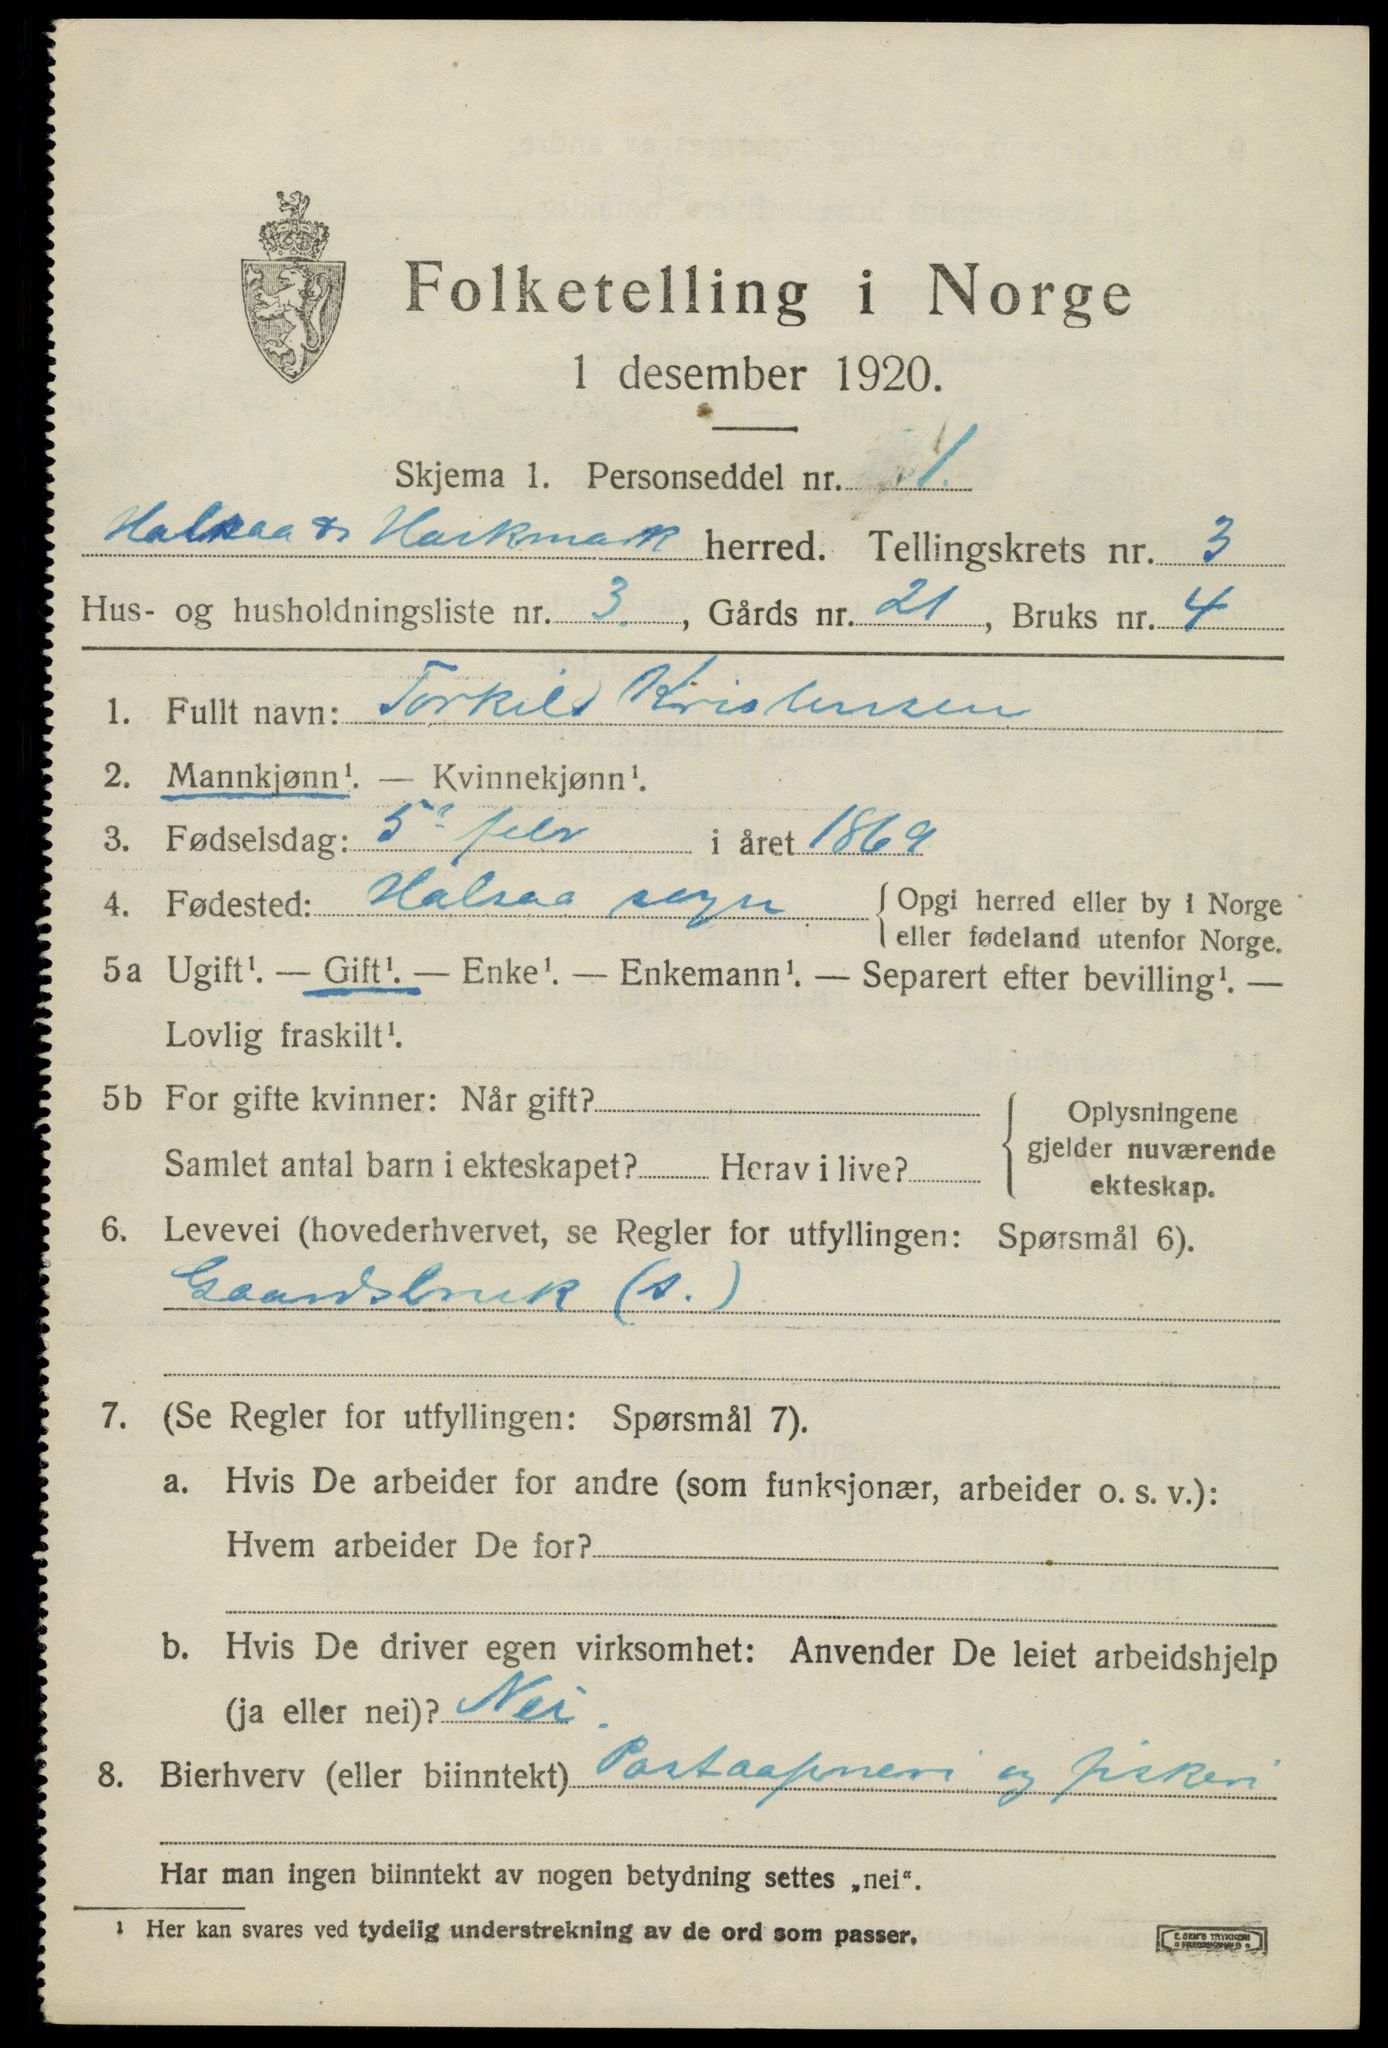 Folketelling i Norge
1 desember 1920.
Skjema 1. Personseddel nr. 1.
Halsaa & Harkmark herred. Tellingskrets nr. 3
Hus- og husholdningsliste nr. 3., Gårds nr. 21, Bruks nr. 4
1. Fullt navn: Torkild Kristensen
2. Mannkjønn¹. — Kvinnekjønn¹.
3. Fødselsdag: 5 febr i året 1869
4. Fødested: Halsaa sogn { Opgi herred eller by i Norge
eller fødeland utenfor Norge.
5a Ugift¹. — Gift¹. — Enke¹. — Enkemann¹. — Separert efter bevilling¹. —
Lovlig fraskilt¹.
5b For gifte kvinner: Når gift? { Oplysningene
gjelder nuværende
Samlet antal barn i ekteskapet? Herav i live?
ekteskap.
6. Levevei (hovederhvervet, se Regler for utfyllingen: Spørsmål 6).
Gaardsbruk (s.)
7. (Se Regler for utfyllingen: Spørsmål 7).
a. Hvis De arbeider for andre (som funksjonær, arbeider o. s. v.):
Hvem arbeider De for?
b. Hvis De driver egen virksomhet: Anvender De leiet arbeidshjelp
(ja eller nei)? Nei.
8. Bierhverv (eller biinntekt) Postaapneri og fiskeri
Har man ingen biinntekt av nogen betydning settes „nei“.
¹ Her kan svares ved tydelig understrekning av de ord som passer.